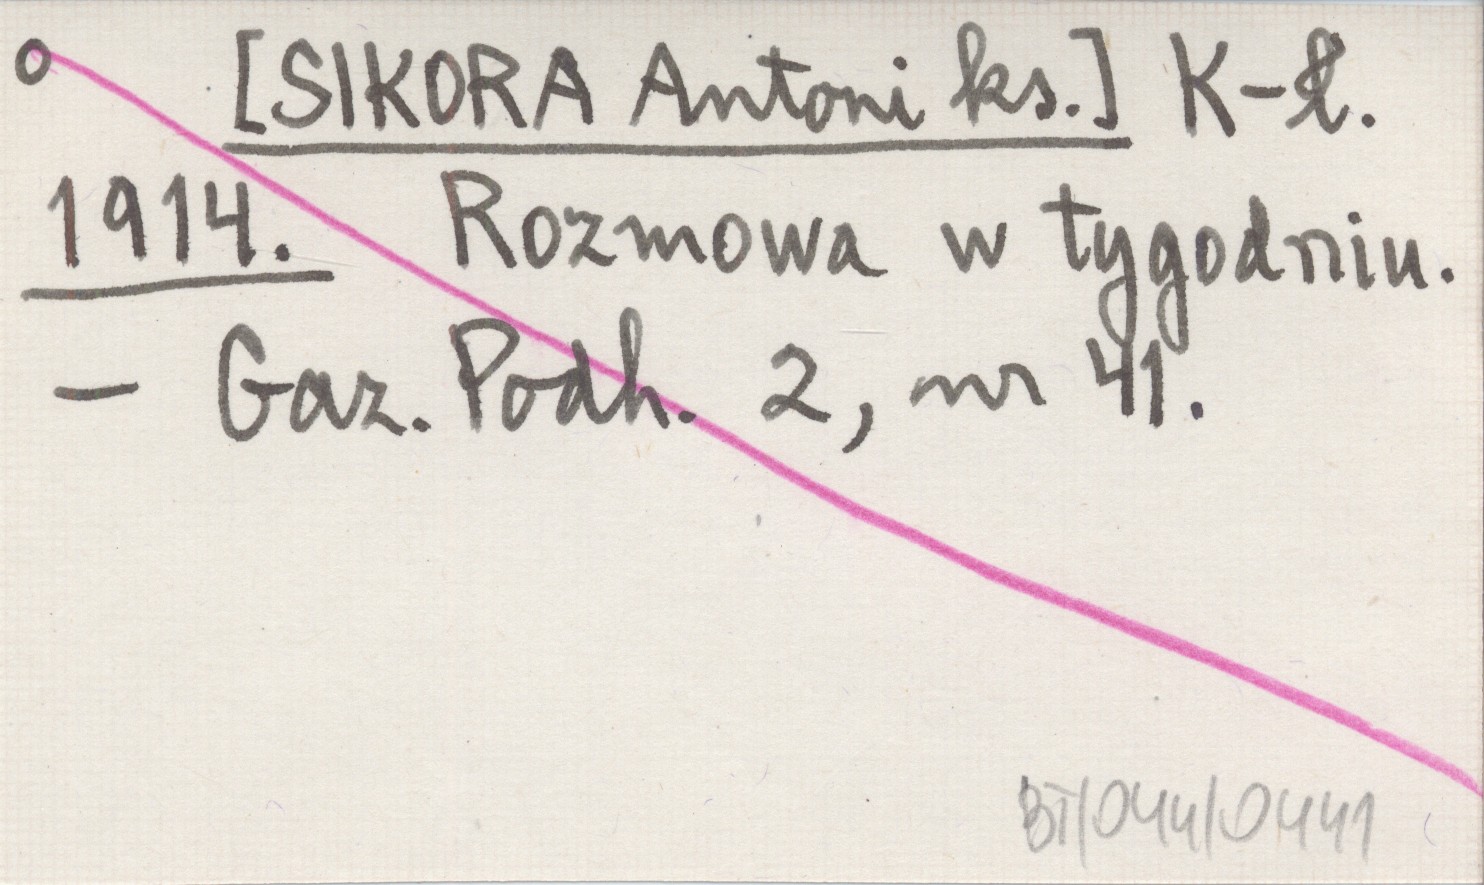 [SIKORA Antoni ks.] K-ł.
1914. Rozmowa w tygodniu.
– Gaz. Podh. 2, nr 41.
BT/044/0441